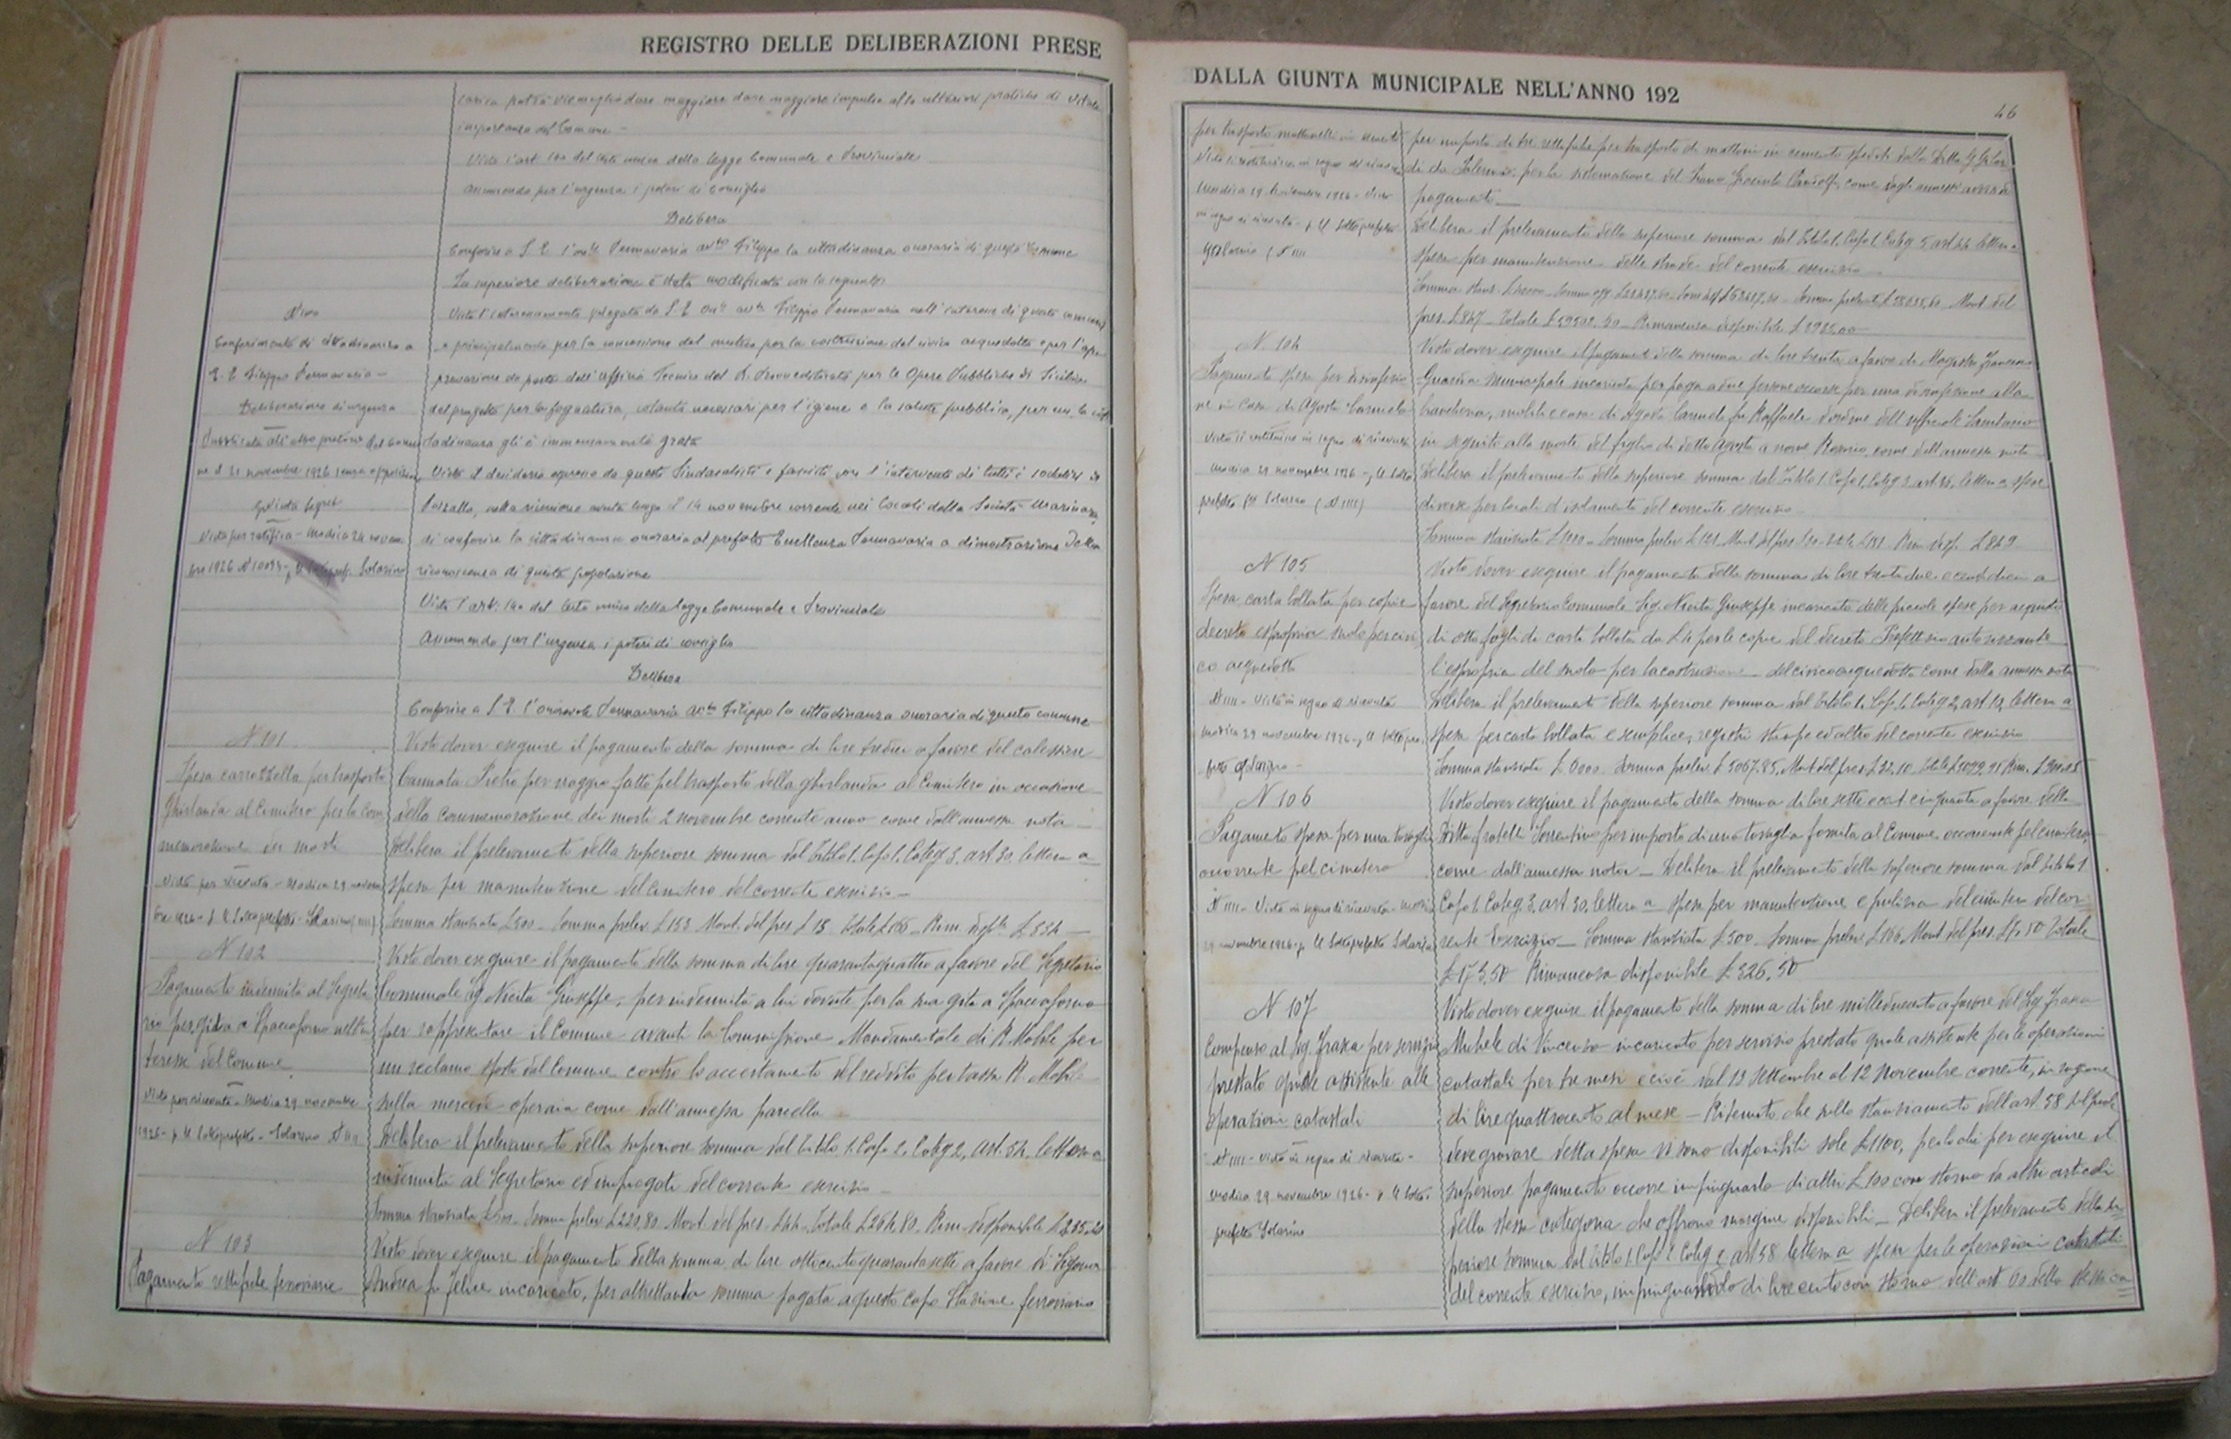 REGISTRO DELLE DELIBERAZIONI PRESE
carica potrà viemeglio dare maggiore dare maggiore impulso alle ulteriori pratiche di vitale
importanza del Comune -
Visto l'art. 140 del testo unico della legge Comunale e Provinciale
assumendo per l'urgenza i poteri di Consiglio
Delibera
Conferire a S. E. l'on. Pennavaria avv.to Filippo la cittadinanza onoraria di questo Comune
La superiore deliberazione è stata modificata con la seguente
Visto l'interessamento spiegato da S. E. on. avv.to Filippo Pennavaria nell'interesse di questo comune
e principalmente per la concessione del mutuo per la costruzione del civico acquedotto e per l'appro
Conferimento di cittadinanza a
S. E. Filippo Pennavaria -
vazione da parte dell'Ufficio Tecnico del R. Provveditorato per le Opere Pubbliche di Sicilia
Deliberazione d'urgenza
del progetto per la fognatura, cotanto necessari per l'igiene e la salute pubblica, per cui la cit
tadinanza gli è immensamente grata
ne il 21 novembre 1926 senza opposizioni
Visto il desiderio espresso da questo Sindacalisti e fascisti con l'intervento di tutti i sodalizi di
Pozzallo, nella riunione avuta luogo il 14 novembre corrente nei locali della Società Marinara
Visto per ratifica - Modica 24 novem
di conferire la cittadinanza onoraria al prefato Eccellenza Pennavaria a dimostrazione della
bre 1926 N 10093 - p. Il Sottopref. Solarino
riconoscenza di questa popolazione
Visto l'art. 140 del testo unico della legge Comunale e Provinciale
Assumendo per l'urgenza i poteri di consiglio
Delibera
Conferire a S. E. l'onorevole Pennavaria avv.to Filippo la cittadinanza onoraria di questo comune
N 101
Visto dover eseguire il pagamento della somma di lire tredici a favore del calessiere
Spesa carrozzella per trasporto
Cannata Pietro per viaggio fatto pel trasporto della ghirlanda al Cimitero in occasione
Ghirlanda al cimitero per la com
della commemorazione dei morti 2 novembre corrente anno come dall'annessa nota -
memorazione dei morti
Delibera il prelevamento della superiore somma dal titolo 1. Capo 1. Categ 3. art. 30, lettera a
Visto per ricevuta - Modica 29 novem
spesa per manutenzione del cimitero del corrente esercizio -
bre 1926 - p. Il Sottoprefetto - Solarino
Somma stanziata £ 500 - Somma prelev. £ 153 Mont. del pres £ 13 totale £ 166 - Rim. disp.le £ 334 -
N 102
Visto dover eseguire il pagamento della somma di lire quarantaquattro a favore del Segretario
Pagamento indennità al Segreta
Comunale Sig. Nicita Giuseppe, per indennità a lui dovute per la sua gita a Spaccaforno
rio per gita a Spaccaforno nell'in
per rappresentare il Comune avanti la Commissione Mandamentale di R. Mobile per
teresse del Comune
un reclamo sporto dal Comune contro lo accertamento del reddito per tassa R. Mobile
Visto per ricevuta - Modica 29 novembre
sulla mercede operaia come dall'annessa parcella
1926 - p. Il Sottoprefetto - Solarino
Delibera il prelevamento della superiore somma dal titolo 1. Capo 2. Categ 2, art. 54, lettera a
indennità al Segretario ed impiegati del corrente esercizio -
Somma stanziata £ 500 - Somma prelev £ 220,80 Mont. del pres. £ 44 - Totale £ 264,80 - Rim. disponibile £ 235,20
N 103
Visto dover eseguire il pagamento della somma di lire ottocentoquarantasette a favore di
Pagamento rettifiche ferroviarie
Andrea fu Felice incaricato, per altrettanta somma pagata a questo Capo Stazione ferroviario
DALLA GIUNTA MUNICIPALE NELL'ANNO 192
46
per trasporto mattonelle in cemento
per importo di tre rettifiche per trasporto di mattoni in cemento spediti dalla Ditta
di da Salerno per la sistemazione del come dagli annessi avvisi di
Modica 29 Novembre 1926 - Visto
pagamento -
in segno di ricevuta - p. Il Sottoprefetto
Delibera il prelevamento della superiore somma dal titolo 1. Capo 1. Categ 5 art. 44 lettera a
Solarino
spesa per manutenzione delle strade del corrente esercizio
pres. £ 847 - Totale £ 59502,40 - Rimanenza disponibile £ 2925,00
N. 104
Visto dover eseguire il pagamento della somma di lire trenta a favore di
Pagamento spesa per disinfezio
Guardia Municipale incaricato per paga a due persone occorse per una disinfezione alla
ne in casa di Agosta Carmelo
biancheria, mobili e casa di Agosta Carmelo fu Raffaele d'ordine dell'ufficiale Sanitario
Visto si restituisce in segno di ricevuta
in seguito alla morte del figlio di detto Agosta a nome Rosario, come dall'annessa nota
Modica 29 novembre 1926 - p. Il Sotto
Delibera il prelevamento della superiore somma dal titolo 1. Capo 1. Categ 3. art. lettera a, spese
prefetto Solarino
diverse per locali d'isolamento del corrente esercizio -
Somma stanziata £ 1000 - Somma prelev £ 121 Mont. del pres £ 30 - totale £ 151 Rim. disp. £ 849
N 105
Visto dover eseguire il pagamento della somma di lire trentadue e cent. dieci a
Spesa carta bollata per copie
favore del Segretario Comunale Sig. Nicita Giuseppe incaricato delle piccole spese per acquisto
decreto esproprio suolo per civi
di otto fogli di carta bollata da £ 4 per le copie del decreto Prefettizio autorizzante
co acquedotto
l'esproprio del suolo per la costruzione del civico acquedotto come dalla annessa nota
Visto in segno di ricevuta
Delibera il prelevamento della superiore somma dal titolo 1. Cap. 1. Categ 2, art. 12, lettera a
Modica 29 novembre 1926 - p. Il Sottopre
spesa per carta bollata e semplice, registri stampe ed altro del corrente esercizio
fetto Solarino -
N 106
Visto dover eseguire il pagamento della somma di lire sette e cent. cinquanta a favore della
Pagamento spesa per una tovaglia
Ditta fratelli Sorrentino per importo di una tovaglia fornita al Comune occorrente pel cimitero,
occorrente pel cimitero
come dall'annessa nota - Delibera il prelevamento della superiore somma dal titolo 1
Visto in segno di ricevuta - Modica
Capo 1. Categ. 3. art. 30, lettera a spesa per manutenzione e pulizia del cimitero del cor
29 novembre 1926 - p. Il Sottoprefetto Solarino
rente Esercizio - Somma stanziata £ 500 - Somma prelev £ 166, Mont. del pres. £ 7.50 Totale
£ 173,50 Rimanenza disponibile £ 326.50
N 107
Visto dover eseguire il pagamento della somma di lire milleduecento a favore del Sig.
Compenso al Sig. per servizio
Michele di Vincenzo incaricato per servizio prestato quale assistente per le operazioni
prestato quale assistente alle
catastali per tre mesi e cioè dal 13 Settembre al 12 Novembre corrente, in ragione
operazioni catastali
di lire quattrocento al mese - Ritenuto che sullo stanziamento dell'art. 58 sul quale
Visto in segno di ricevuta -
deve gravare detta spesa vi sono disponibili sole £ 1100, perlochè per eseguire il
Modica 29 novembre 1926 - p. Il Sotto
superiore pagamento occorre impinguarlo di altri £ 100 con storno da altri articoli
prefetto Solarino
della stessa categoria che offrono margine disponibili - Delibera il prelevamento della su
periore somma dal titolo 1. Capo 2. Categ 2, art. 58 lettera a spesa per le operazioni catastali
del corrente esercizio, impinguandolo di lire cento con storno dell'art. 60 della stessa ca